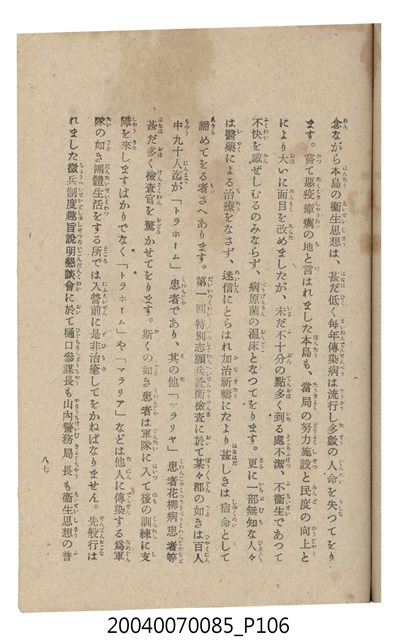 念ながら本島の衞生思想は、甚だ低く每年傳染病は流行し多數の人命を失つてをり
ます。嘗て惡疫瘴癘の地と言はれました本島も、當局の努力施設と民度の向上と
により大いに面目を改めましたが、未だ不十分の點多く到る處不潔、不衞生であつて
不快を感ぜしむるのみならず、病原菌の溫床となつてをります。更に一部無知な人々
は醫藥による治療をなさず、迷信にとらはれ加治祈禱にたより甚しきは宿命として
諦めてをる者さへあります。第一回特別志願兵銓衡檢査に於て某々郡の如きは百人
中九十人迄が「トラホーム」患者であり、其の他「マラリヤ」患者花柳病患者等
甚だ多く檢査官を驚かせてをります。斯くの如き患者は軍隊に入て後の訓練に支
障を來しますばかりでなく「トラホーム」や、「マラリア」などは他人に傳染する爲軍
隊の如き團體生活をする所では入營前に是非治癒してをかねばなりません。先般行は
れました徵兵制度趣旨說明懇談會に於て樋口參謀長も山內警務局長も衞生思想の普
八七
20040070085_P106